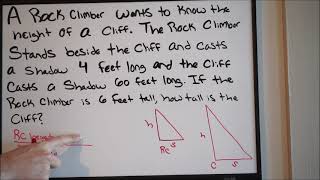 A Rock Climber wants to know the
height of a Cliff. The Rock Climber
Stands beside the Cliff and Casts
a Shadow 4 feet long and the Cliff
Casts a Shadow 60 feet long. If the
Rock Climber is 6 feet tall, how tall is the
Cliff?
RC
h
h
RC
s
C
s